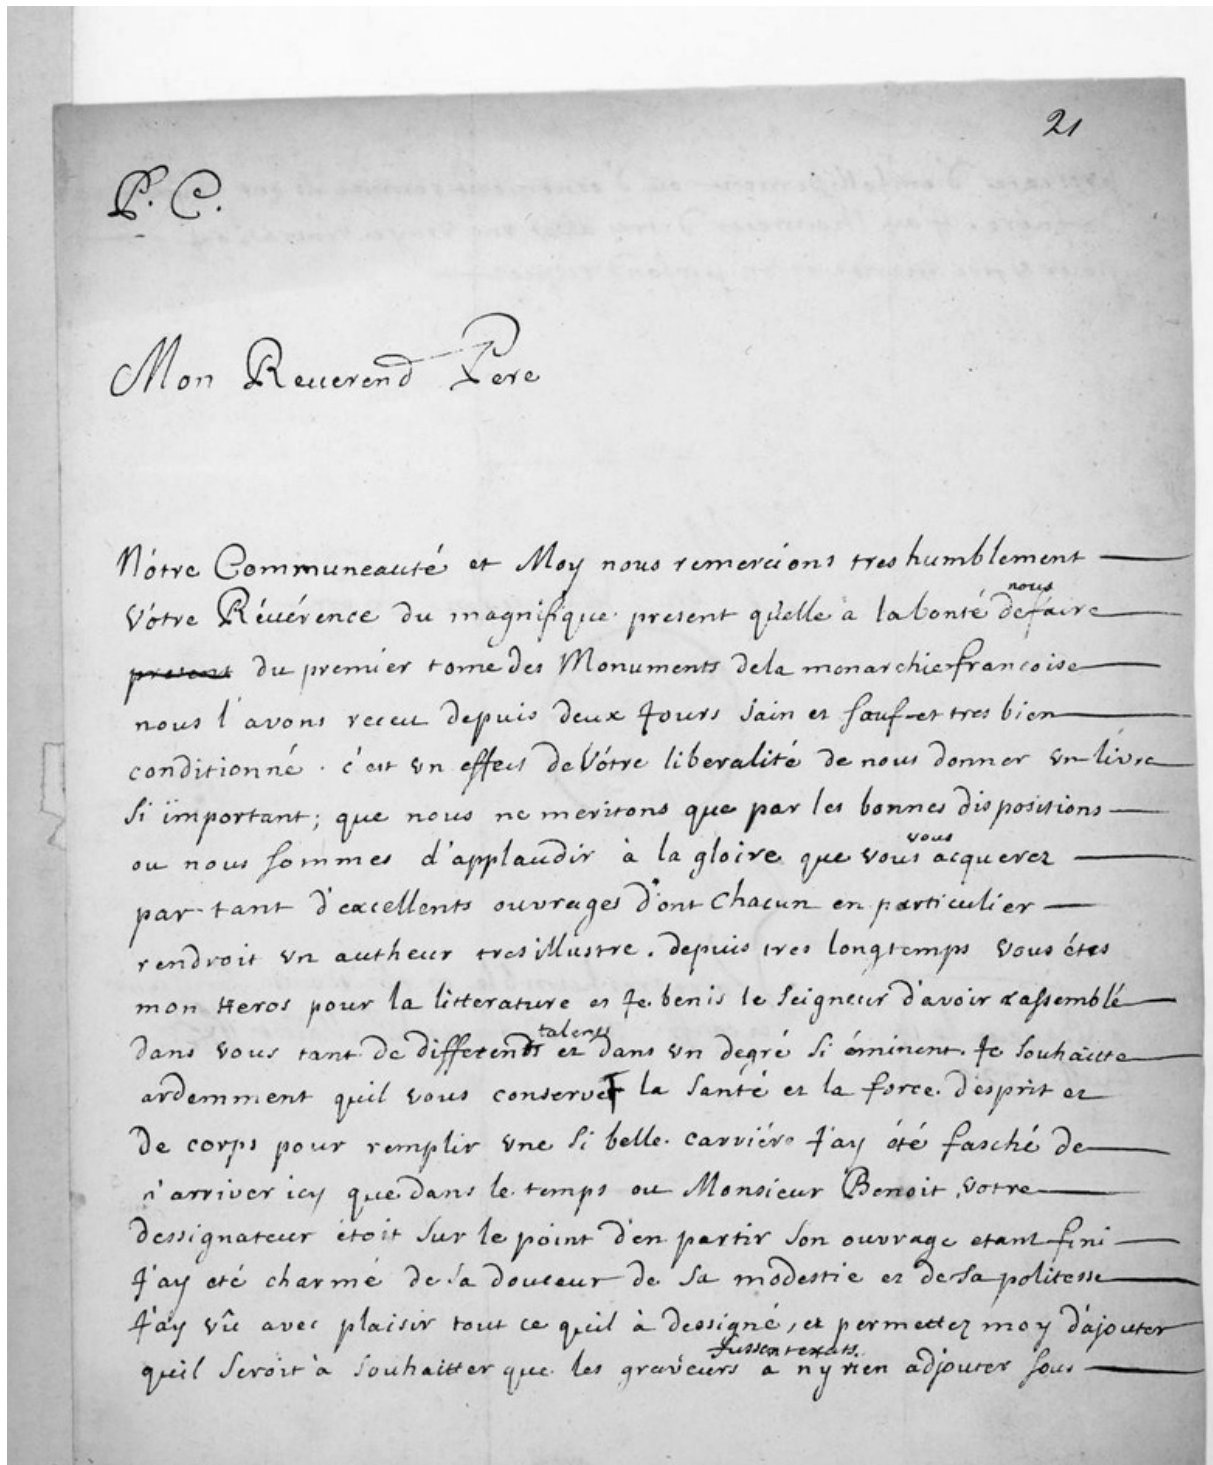 21
P. C.
Mon Reuerend Pere
Nôtre Communeauté et Moy nous remercions tres humblement
nous
Vôtre Réuérence du magnifique present qu'elle à la bonté de faire
present du premier tome des Monuments dela monarchie francoise
nous l'avons receu depuis deux Jours sain et sauf et tres bien
conditionné. c'est vn effect de Vôtre liberalité de nous donner vn livre
si important; que nous ne meritons que par les bonnes dispositions
vous
ou nous sommes d'applaudir à la gloire que vous acquerez
par tant d'excellents ouvrages d'ont chacun en particulier
rendroit vn autheur tres illustre. depuis tres longtemps vous étes
mon Heros pour la litterature et Je benis le seigneur d'avoir rassemblé
talents
dans vous tant de differents et dans vn degré si éminent. Je souhaitte
ardemment quil vous conserve la santé et la force d'esprit et
de corps pour remplir vne si belle carriére J'ay été fasché de
n'arriver icy que dans le temps ou Monsieur Benoit votre
dessignateur étoit sur le point d'en partir son ouvrage etant fini
J'ay eté charmé de sa douceur de sa modestie et de sa politesse
J'ay vû avec plaisir tout ce quil à dessigné, et permettez moy d'ajouter
fussent exacts
quil seroit à souhaitter que les graveurs a n'y rien adjouter sous